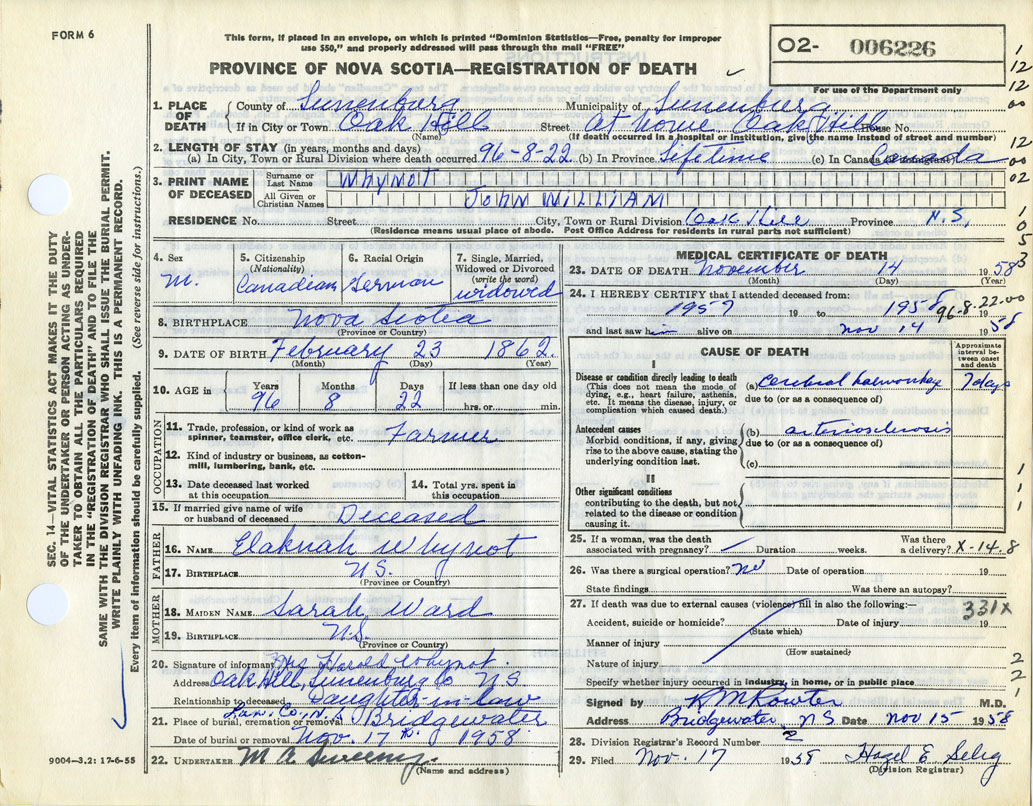 FORM 6
This form, if placed in an envelope, on which is printed "Dominion Statistics—Free, penalty for improper
use $50," and properly addressed will pass through the mail "FREE"
PROVINCE OF NOVA SCOTIA—REGISTRATION OF DEATH
02- 006226
For use of the Department only
1. PLACE OF DEATH
County of Lunenburg Municipality of Lunenburg
If in City or Town Oak Hill Street At home Oak Hill House No.
(Name) (If death occurred in a hospital or institution, give the name instead of street and number)
2. LENGTH OF STAY (in years, months and days)
(a) In City, Town or Rural Division where death occurred 96-8-22 (b) In Province Lifetime (c) In Canada Canada
3. PRINT NAME OF DECEASED
Surname or Last Name WhyNot
All Given or Christian Names JOHN WILLIAM
RESIDENCE No. Street City, Town or Rural Division Oak Hill Province N.S.
(Residence means usual place of abode. Post Office Address for residents in rural parts not sufficient)
4. Sex M.
5. Citizenship (Nationality) Canadian
6. Racial Origin German
7. Single, Married, Widowed or Divorced (write the word) widowed
8. BIRTHPLACE Nova Scotia
(Province or Country)
9. DATE OF BIRTH February 23 1862.
(Month) (Day) (Year)
10. AGE in Years 96 Months 8 Days 22 If less than one day old hrs. or min.
OCCUPATION
11. Trade, profession, or kind of work as
spinner, teamster, office clerk, etc. Farmer
12. Kind of industry or business, as cotton-
mill, lumbering, bank, etc.
13. Date deceased last worked
at this occupation
14. Total yrs. spent in
this occupation
15. If married give name of wife
or husband of deceased Deceased
FATHER
16. NAME Whynot
17. BIRTHPLACE N.S.
(Province or Country)
MOTHER
18. MAIDEN NAME Sarah Ward
19. BIRTHPLACE N.S.
(Province or Country)
20. Signature of informant Mrs Harold Whynot.
Address Oak Hill, Lunenburg Co N.S
Relationship to deceased Daughter-in-law
Lun. Co., N.S.
21. Place of burial, cremation or removal Bridgewater
Date of burial or removal Nov. 17 th. 1958.
22. UNDERTAKER M A Sweeny.
(Name and address)
MEDICAL CERTIFICATE OF DEATH
23. DATE OF DEATH November 14 1958
(Month) (Day) (Year)
24. I HEREBY CERTIFY that I attended deceased from:
1957 19 to 1958
96-8-22-00
and last saw him alive on Nov 14 1958
CAUSE OF DEATH
Approximate interval between onset and death
I
Disease or condition directly leading to death
(This does not mean the mode of
dying, e.g., heart failure, asthenia,
etc. It means the disease, injury, or
complication which caused death.)
(a) Cerebral haemorrhage 7 days
due to (or as a consequence of)
Antecedent causes
Morbid conditions, if any, giving
rise to the above cause, stating the
underlying condition last.
(b) arteriosclerosis
due to (or as a consequence of)
(c)
II
Other significant conditions
contributing to the death, but not
related to the disease or condition
causing it.
25. If a woman, was the death
associated with pregnancy? Duration weeks. Was there
a delivery? X-14.8
26. Was there a surgical operation? no Date of operation 19
State findings Was there an autopsy?
27. If death was due to external causes (violence) fill in also the following:—
331X
Accident, suicide or homicide? Date of injury 19
(State which)
Manner of injury
(How sustained)
Nature of injury
Specify whether injury occurred in industry, in home, or in public place
Signed by M.D.
Address Bridgewater, NS Date Nov 15 1958
28. Division Registrar's Record Number 2
29. Filed Nov. 17 1958 Hazel E. Selig
(Division Registrar)
SEC. 14—VITAL STATISTICS ACT MAKES IT THE DUTY
OF THE UNDERTAKER OR PERSON ACTING AS UNDER-
TAKER TO OBTAIN ALL THE PARTICULARS REQUIRED
IN THE "REGISTRATION OF DEATH" AND TO FILE THE
SAME WITH THE DIVISION REGISTRAR WHO SHALL ISSUE THE BURIAL PERMIT.
WRITE PLAINLY WITH UNFADING INK. THIS IS A PERMANENT RECORD.
Every item of information should be carefully supplied. (See reverse side for instructions.)
9004—3.2: 17-6-55
1
12
12
00
12
00
02
1
0
5
3
1
1
1
2
2
1